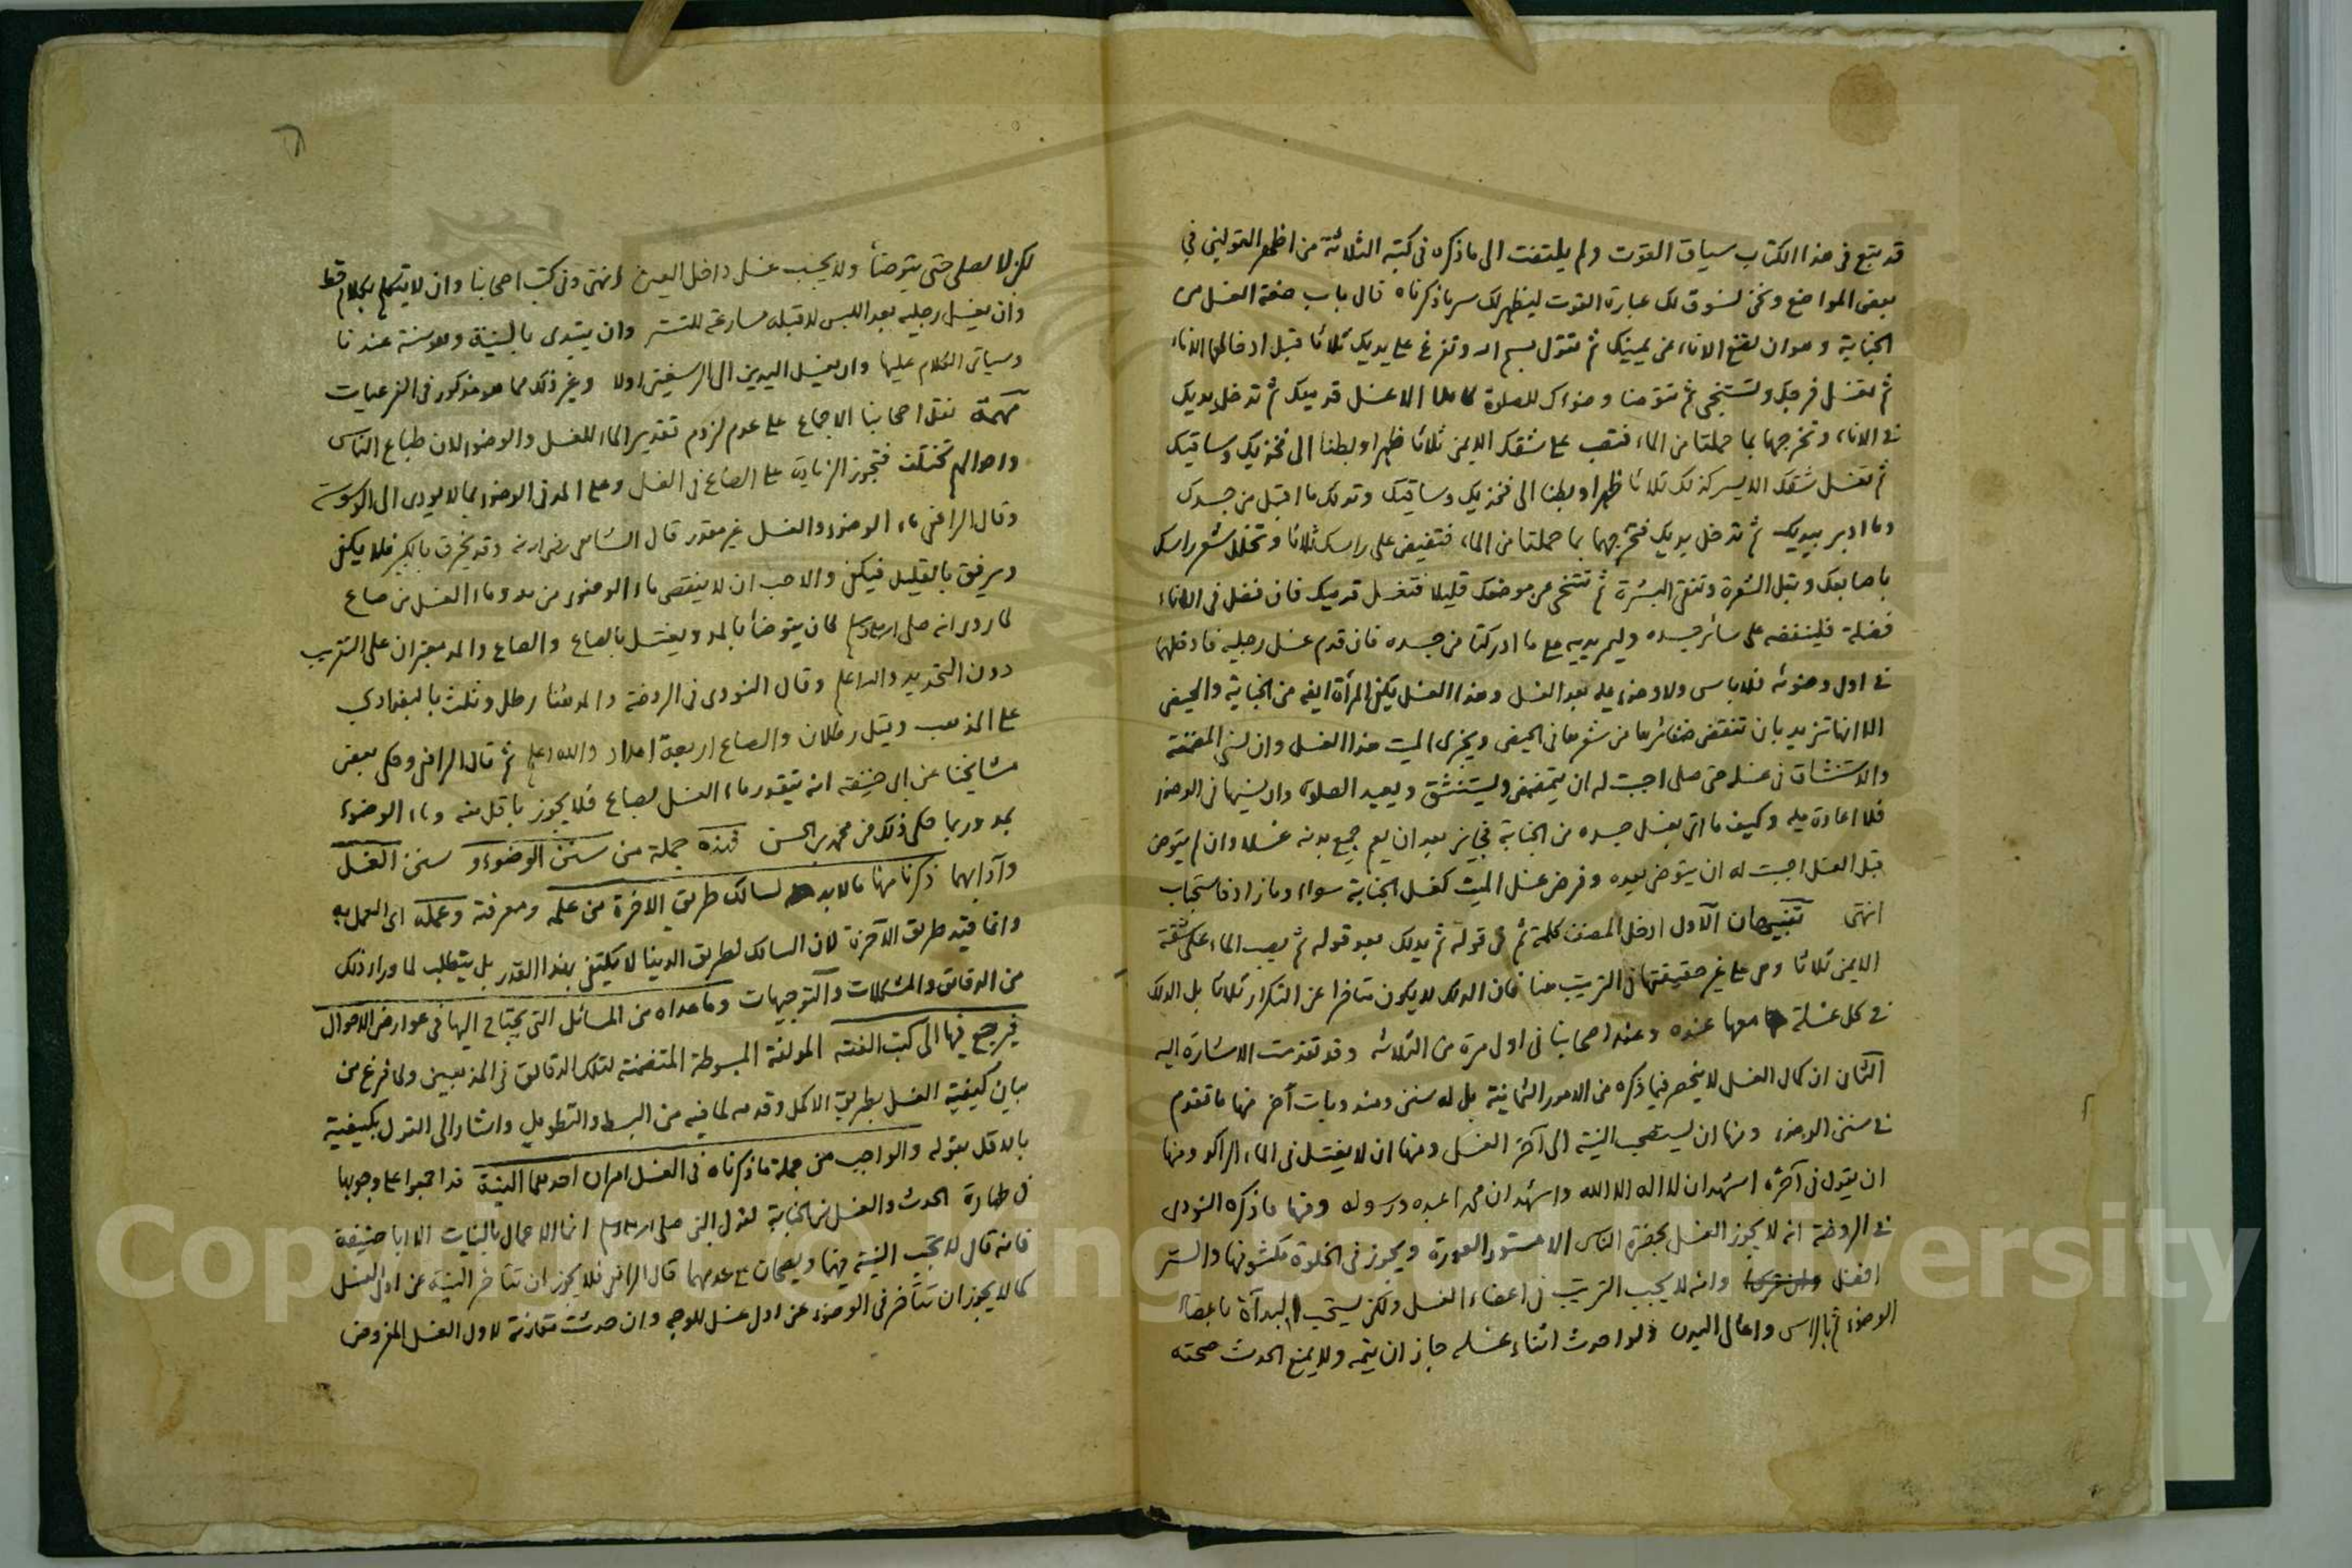 قد يتبع في هذا الكتاب سياق القوت ولم يلتفت الى ما ذكره في كتبه الثلاثة من اظهر القولين في
بعض المواضع ونحن نسوق لك عبارة القوت ليظهر لك سر ما ذكرناه قال باب صفة الغسل من
الجنابة وهو ان تضع الاناء عن يمينك ثم تقول بسم الله وتفرغ على يديك ثلاثا قبل ادخالهما الاناء
ثم تغسل فرجك وتستنجي ثم تتوضا وضوءك للصلوة كاملا الا غسل قدميك ثم تدخل يديك
في الاناء وتخرجهما بما حملتا من الماء فتصب على شقك الايمن ثلاثا ظهرا وبطنا الى فخذيك وساقيك
ثم تغسل شقك الايسر كذلك ثلاثا ظهرا وبطنا الى فخذيك وساقيك وتدلك ما اقبل من جسدك
وما ادبر بيديك ثم تدخل يديك فتخرجهما بما حملتا من الماء فتفيض على راسك ثلاثا وتخلل شعر راسك
باصابعك وتبل الشعرة وتنقي البشرة ثم تتنحى عن موضعك قليلا فتغسل قدميك فان فضل في الاناء
فضلة فلينفضه على سائر جسده وليمر يديه على ما ادركتا من جسده فان قدم غسل رجليه فادخلهما
في اول وضوئه فلا باس ولا وضوء عليه بعد الغسل وهذا الغسل يكفي المرأة ايضا من الجنابة والحيض
الا انها تزيد بان تنقض ضفائرها من شعرها في الحيض ويجزى الميت هذا الغسل وان نسي المضمضة
والاستنشاق في غسله حتى صلى احببت له ان يتمضمض ويستنشق ويعيد الصلوة وان نسيها في الوضوء
فلا اعادة عليه وكيف ما اتى بغسل جسده من الجنابة فجايز بعد ان يعم جميع بدنه غسلا وان لم يتوض
قبل الغسل احببت له ان يتوض بعده وفرض غسل الميت كغسل الجنابة سواء وما زاد فاستحباب
انتهى تنبيهان الاول ادخل المصنف كلمة ثم في قوله ثم يدلك بعد قوله ثم يصب الماء على شقه
الايمن ثلاثا وهي على غير حقيقتها في الترتيب هنا فان الدلك لا يكون متاخرا عن التكرار ثلاثا بل الدلك
في كل غسلة معها عنده وعند اصحابنا في اول مرة من الثلاثه وقد تقدمت الاشارة اليه
الثاني ان كمال الغسل لا ينحصر فيما ذكره من الامور الثمانية بل له سنن ومندوبات اخر منها ما تقدم
في سنن الوضوء ومنها ان يستصحب النية الى آخر الغسل ومنها ان لا يغتسل في الماء الراكد ومنها
ان يقول في آخره اشهد ان لا اله الا الله واشهد ان محمدا عبده ورسوله ومنها ما ذكره النووى
في الروضة انه لا يجوز الغسل بحضرة الناس الا مستور العورة ويجوز في الخلوة مكشوفها والستر
افضل وانه لا يجب الترتيب في اعضاء الغسل ولكن يستحب البدآة باعضاء
الوضوء ثم بالراس واعالى البدن ولو احدث اثناء غسله جاز ان يتمه ولا يمنع الحدث صحته
لكن لا يصلى حتى يتوضأ ولا يجب غسل داخل العين انتهى وفي كتب اصحابنا وان لا يتكلم بكلام قط
وان يغسل رجليه بعد اللبس لا قبله مسارعة للتستر وان يبتدى بالنية وهو سنة عندنا
وسياتى الكلام عليها وان يغسل اليدين الى الرسغين اولا وغير ذلك مما هو مذكور في الفرعيات
مهمة نقل اصحابنا الاجماع على عدم لزوم تقدير الماء للغسل والوضوء لان طباع الناس
واحوالهم تختلف فتجوز الزيادة على الصاع في الغسل وعلى المد في الوضوء بما لا يودى الى الوسوسة
وقال الرافعي ماء الوضوء والغسل غير مقدر قال الشافعي رضى الله عنه وقد يخرق بالكثير فلا يكفي
ويرفق بالقليل فيكفي والاحب ان لا ينقص ماء الوضوء من مد وماء الغسل من صاع
لما روى انه صلى الله عليه وسلم كان يتوضأ بالمد ويغتسل بالصاع والصاع والمد معتبران على التقريب
دون التحديد والله اعلم وقال النووى في الروضة والمد هنا رطل وثلث بالبغدادي
على المذهب وقيل رطلان والصاع اربعة امداد والله اعلم ثم قال الرافعي وحكى بعض
مشايخنا عن ابى حنيفه انه يتقدر ماء الغسل بصاع فلا يجوز باقل منه وماء الوضوء
بمد وربما حكى ذلك عن محمد بن الحسن فهذه جملة من سنن الوضوء و سنن الغسل
وآدابهما ذكرنا منها ما لا بد لسالك طريق الاخرة من علمه ومعرفة وعمله اى العمل به
وانما قيد طريق الآخرة لان السالك لطريق الدنيا لا يكتفي بهذا القدر بل يتطلب لما وراء ذلك
من الدقائق والمشكلات والتوجيهات وما عداه من المسائل التى يحتاج اليها في عوارض الاحوال
فيرجع فيها الى كتب الفقه المولفة المبسوطة المتضمنة لتلك الدقائق في المذهبين ولما فرغ من
بيان كيفية الغسل بطريق الاكمل وقدمه لما فيه من البسط والتطويل واشار الى القول بكيفية
بالاقل بقوله والواجب من جملة ما ذكرناه في الغسل امران احدهما النية قد اجمعوا على وجوبها
في طهارة الحدث والغسل من الجنابة لقول النبي صلى الله عليه وسلم انما الاعمال بالنيات الا ابا حنيفة
فانه قال لا تجب النية فيهما ويصحان مع عدمها قال الرافعي فلا يجوز ان تتاخر النية عن اول الغسل
كما لا يجوز ان تتأخر في الوضوء عن اول غسل الوجه وان حدثت مقارنة لاول الغسل المفروض